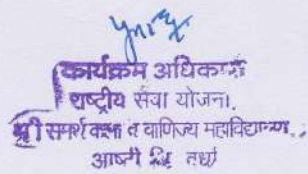 कार्यक्रम अधिकारी
राष्ट्रीय सेवा योजना.
श्री समर्थ कला व वाणिज्य महाविद्यालय,
आष्टी